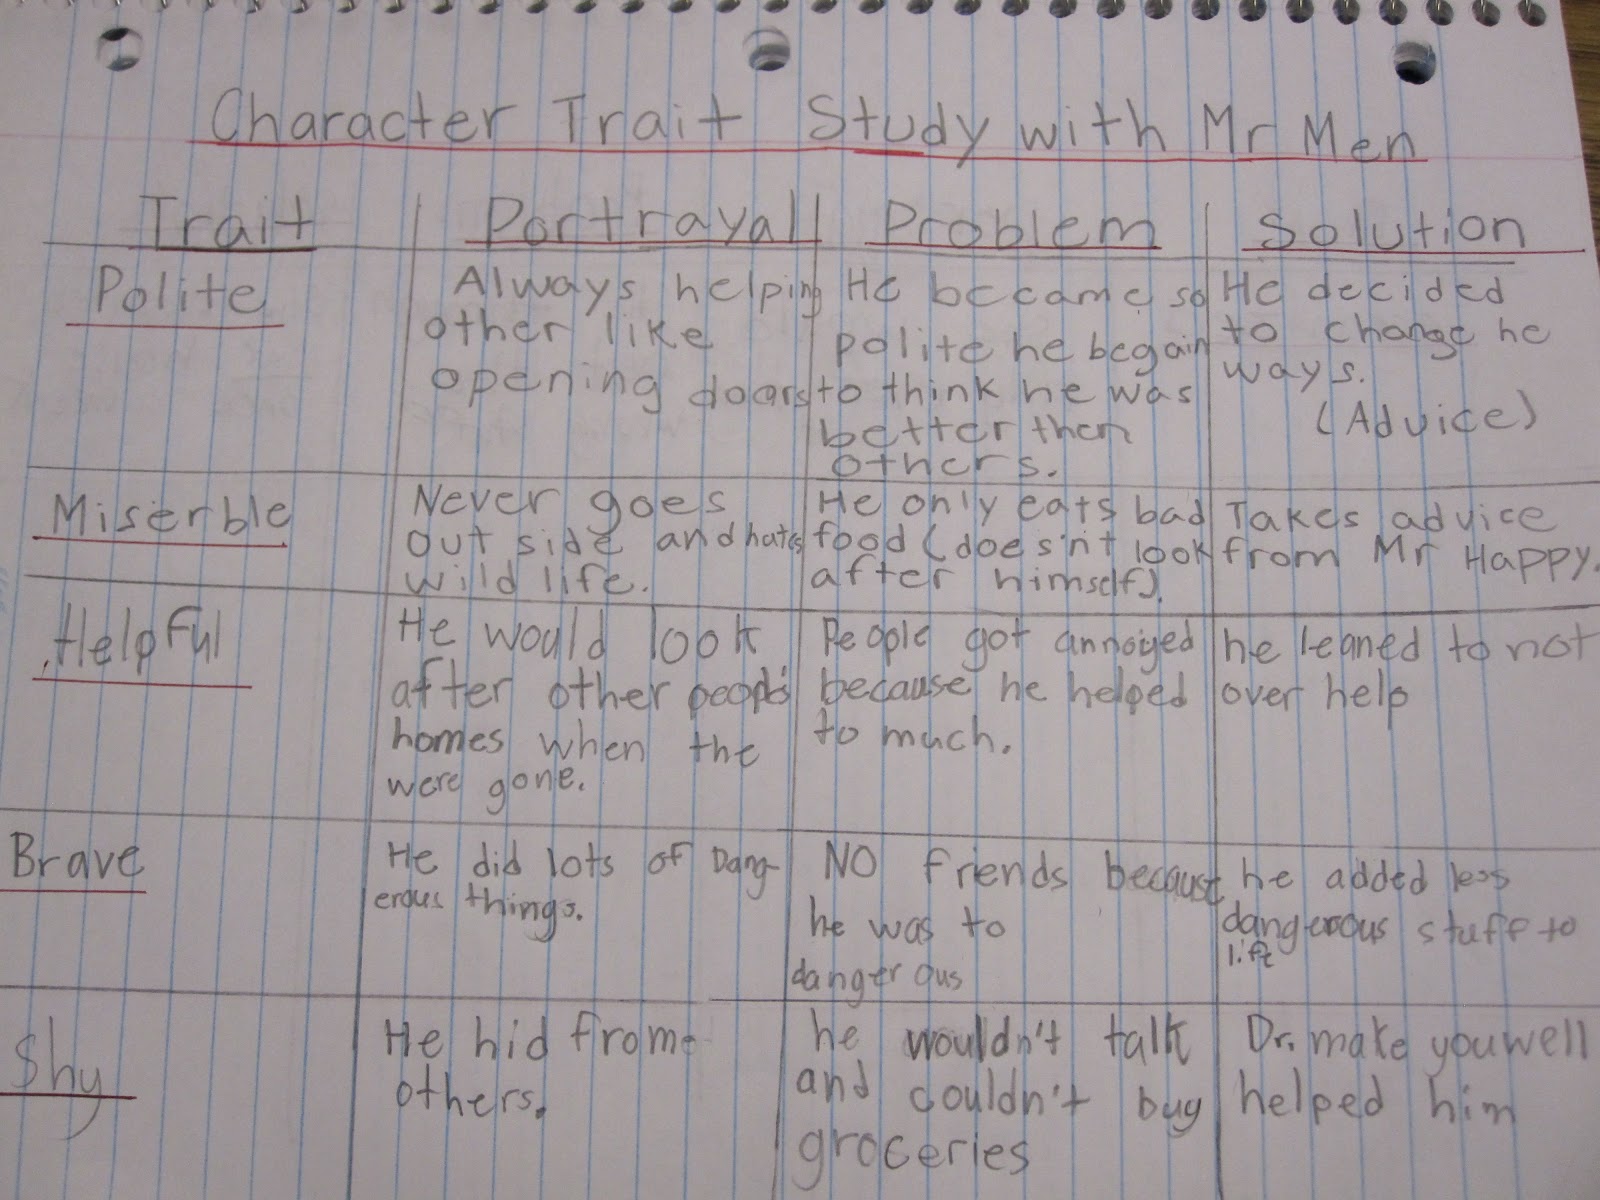 Character Trait Study with Mr Men
Trait Portrayall Problem Solution
Polite
Always helping
other like
opening doors
He became so
polite he begain
to think he was
better then
others.
He decided
to change he
ways.
(Advice)
Miserble
Never goes
out side and hates
wild life.
He only eats bad
food (does'nt look
after himself).
Takes advice
from Mr Happy.
Helpful
He would look
after other peopls'
homes when the
were gone.
People got annoiyed
because he helped
to much.
he leaned to not
over help
Brave
He did lots of Dang-
erous things.
NO friends because
he was to
dangerous
he added less
dangerous stuff to
lift
Shy
He hid from
others.
he wouldn't talk
and couldn't buy
groceries
Dr. make you well
helped him